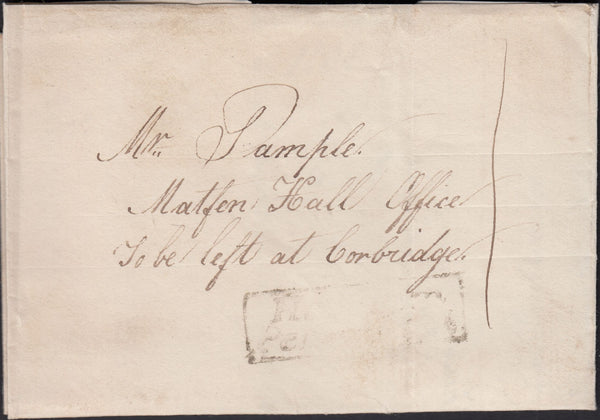 Mr. Sample.
Matfen Hall Office
To be left at Corbridge.